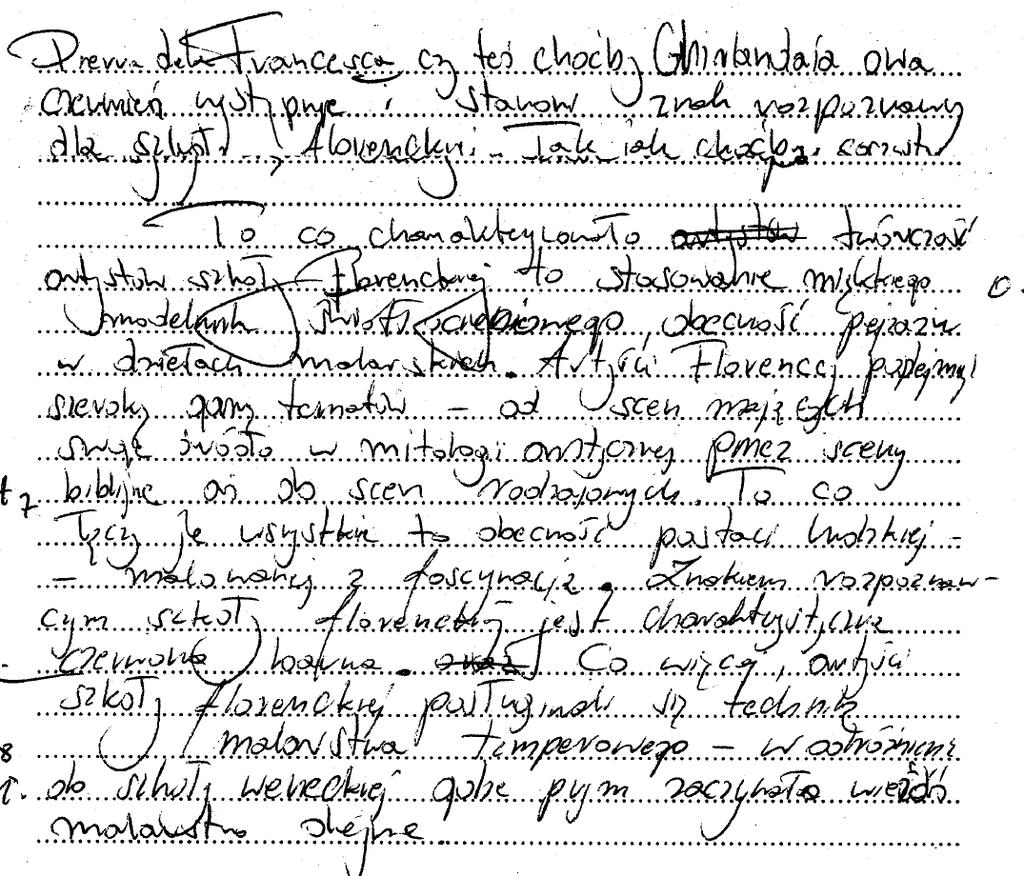 Pierra della Francesca czy też choćby Ghirlandaia owa
czerwień występuje i stanowi znak rozpoznawczy
dla szkoły florenckiej. Tak jak choćby
To co charakteryzowało artystów twórczość
artystów szkoły Florenckiej to stosowanie miękkiego
modelunku światłocieniowego, obecność pejzażu
w dziełach malarskich. Artyści Florencji podejmują
szeroką gamę tematów – od scen mających
swoje źródło w mitologi antycznej przez sceny
biblijne aż do scen rodzajowych. To co
łączy je wszystkie to obecność postaci ludzkiej –
– malowanej z fascynacją. Znakiem rozpoznaw-
czym szkoły florenckiej jest charakterystyczna
czerwona barwa. oraz Co więcej, artyści
szkoły florenckiej posługiwali się techniką
malarstwa temperowego – w odróżnieniu
do szkoły weneckiej gdzie prym zaczynało wieźdź
malarstwo olejne